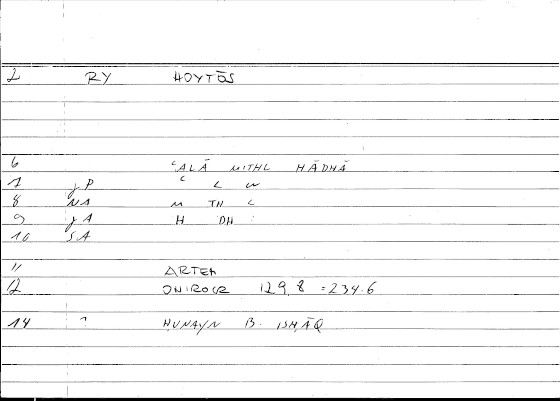 2 RY HOYTŌS
6 ʿALĀ MITHL HĀDHĀ
7 JP ʿ L W
8 NA M TH L
9 JA H DH :
10 SA
11 ARTEM
12 ONIROCR 129,8 = 234.6
14 ? ḤUNAYN B. ISḤĀQ